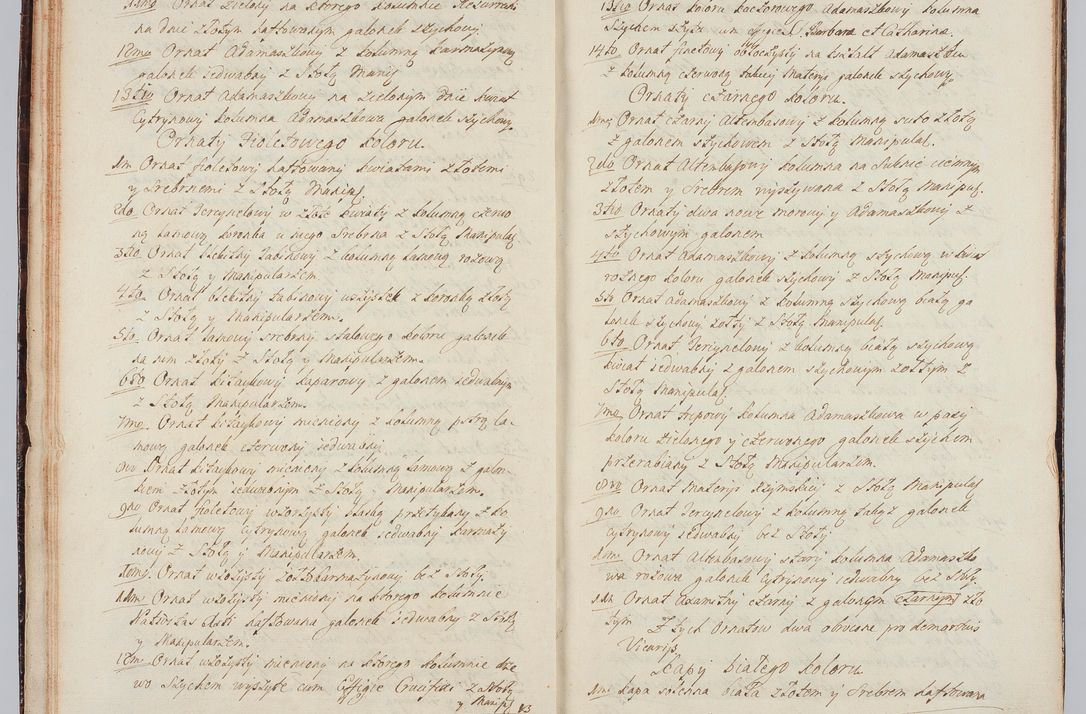 11mo Ornat Zielony na ktorego kolumnie Resurrexit
na dnie złotym haftowanym galonek szychowy
12mo Ornat Adamaszkowy z kolumną karmazynową
galonek iedwabny z Stołą Manip
13tio Ornat adamaszkowy na zielonym dnie kwiat
Cytrynowy kolumna Adamaszkowa galonek szychowy
Ornaty Fioletowego koloru
1m Ornat fioletowy haftowany kwiatami złotemi
y Srebrnemi z Stołą Manip
2do Ornat Tercynelowy w złote kwiaty z kolumną czerwo
ną lamową koronka u niego Srebrna z Stołą Manipul
3tio Ornat błękitny Tabinowy z kolumną lamową rożową
z Stołą y Manipularzem
4to Ornat błękitny tabinowy wszystek z koronką złotą
z Stołą y Manipularzem.
5to Ornat lamowy srebrny stalowego koloru galonek
na nim złoty z Stołą y Manipularzem.
6to Ornat kitaykowy kaparowy z galonem iedwabnym
z Stołą Manipularzem.
7mo Ornat kitaykowy mieniony z kolumną pstrą la-
mową galonek czerwony iedwabny
8vo Ornat kitaykowy mieniony z kolumną lamową z galon-
kiem żołtym iedwabnym z Stołą y Manipularzem.
9no Ornat fioletowy wzorzysty z ko
lumną lamową cytrynową galonek iedwabny karmazy
nowy z Stołą y Manipularzem.
10my Ornat wzorzysty żołtokarmazynowy bez Stoły.
11mo Ornat wzorzysty mieniony na ktorego kolumnie
haftowana galonek iedwabny z Stołą
y Manipularzem.
12m Ornat wzorzysty mieniony na ktorego kolumnie drze
wo szychem wyszyte cum Effigie Crucifixi z Stołą
y Manip
13
13tio Ornat koloru kaczorowego Adamaszkowy kolumna
szychem szyta cum effigie S. Barbara et Catharina.
14to Ornat fioletowy na kształt Adamaszku
z kolumną czerwoną takiey Materyi galonek szychowy
Ornaty czarnego koloru.
1my Ornat czarny Altembasowy z kolumną suto złotą
z galonem szychowem z Stołą Manipul.
2do Ornat Altembasowy kolumna na Suknie ciemney
złotem y Srebrem wyszywana z Stołą Manipul.
3tio Ornaty dwa nowe morowy y Adamaszkowy z
szychowym galonem
4to Ornat Adamaszkowy z kolumną szychową w kwiat
rożnego koloru galonek szychowy z Stołą Manipul.
5to Ornat Adamaszkowy z kolumną szychową białą ga
lonek szychowy żołty z Stołą Manipul.
6to Ornat Tercynelowy z kolumną białą szychową
kwiat iedwabny z galonem szychowym żołtym z
Stołą Manipul.
7mo Ornat trypowy kolumna Adamaszkowa w pasy
koloru zielonego y czerwonego galonek szychem
przerabiany z Stołą Manipularzem.
8vo Ornat Materyi Rzymskiey z Stołą Manipul
9no Ornat Tercynelowy z kolumną takąż galonek
Cytrynowy iedwabny bez Stoły
10m Ornat Altembasowy stary kolumna Adamaszko
wa rożowa galonek Cytrynowy iedwabny bez Stoły.
11m Ornat axamitny czarny z galonem czarnym żło
tym
Z tych Ornatow dwa obrocone pro demortuis
Vicariis
Kapy białego koloru
1m Kapa solenna biała złotem y Srebrem haftowana